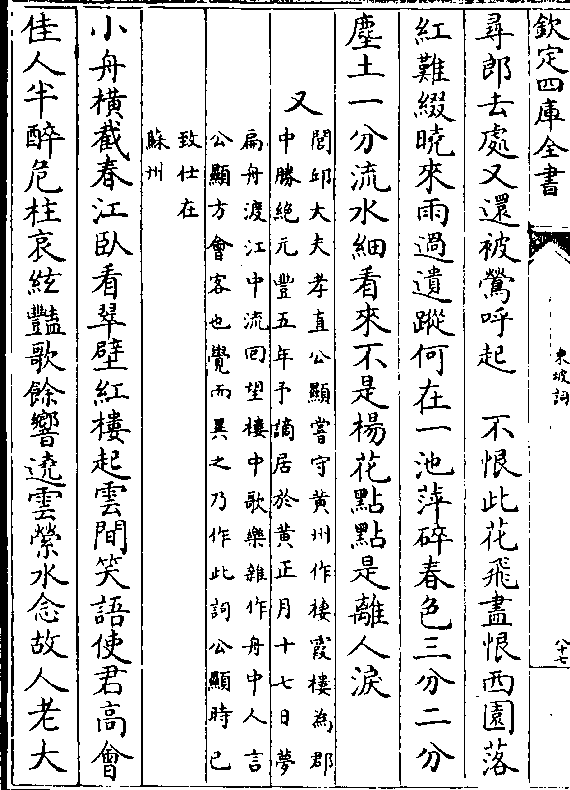 欽定四庫全書
東坡詞
八十七
尋郎去處又還被鶯呼起　不恨此花飛盡恨西園落
紅難綴曉來雨過遺蹤何在一池萍碎春色三分二分
塵土一分流水細看來不是楊花點點是離人淚
又
閭邱大夫孝直公顯嘗守黃州作棲霞樓為郡
中勝絕元豐五年予謫居於黃正月十七日夢
扁舟渡江中流回望棲中歌樂雜作舟中人言
公顯方會客也覺而異之乃作此詞公顯時已
致仕在
蘇州
小舟橫截春江臥看翠壁紅樓起雲間笑語使君高會
佳人半醉危柱哀絃豔歌餘響遶雲縈水念故人老大